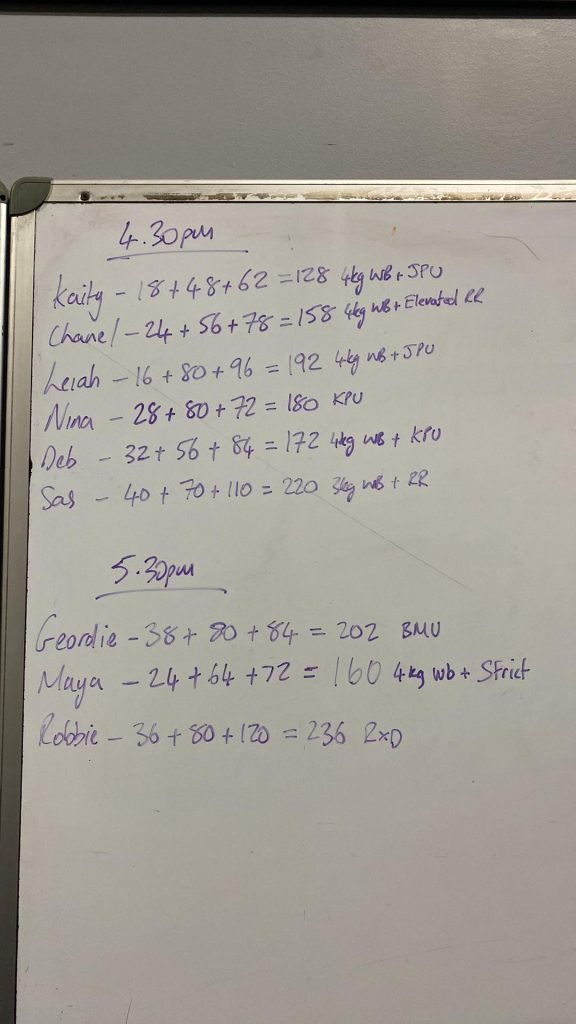 4.30pm
Kaity - 18 + 48 + 62 = 128 4kg WB + JPU
Chanel - 24 + 56 + 78 = 158 4kg WB + Elevated RR
Leiah - 16 + 80 + 96 = 192 4kg WB + JPU
Nina - 28 + 80 + 72 = 180 KPU
Deb - 32 + 56 + 84 = 172 4kg WB + KPU
Sas - 40 + 70 + 110 = 220 3kg WB + RR
5.30pm
Geordie - 38 + 80 + 84 = 202 BMU
Maya - 24 + 64 + 72 = 160 4kg wb + Strict
Robbie - 36 + 80 + 120 = 236 RxD